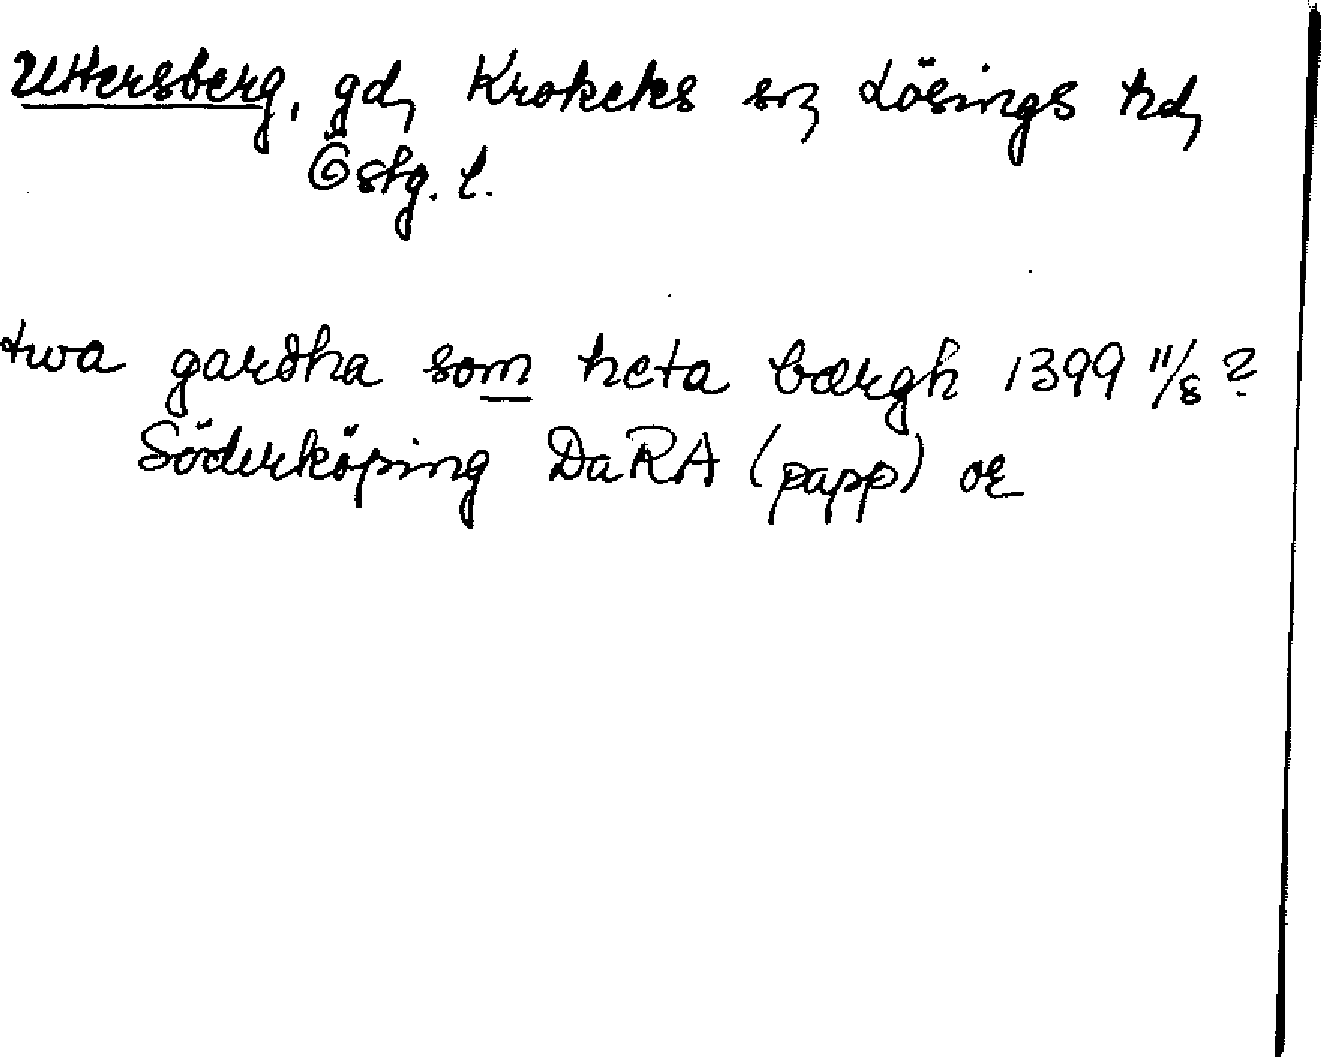 Uttersberg, gd, Krokeks sn, Lösings hd,
Östg. l.
twa gardha som heta bærgh 1399 11/8 ?
Söderköping DaRA (papp) or